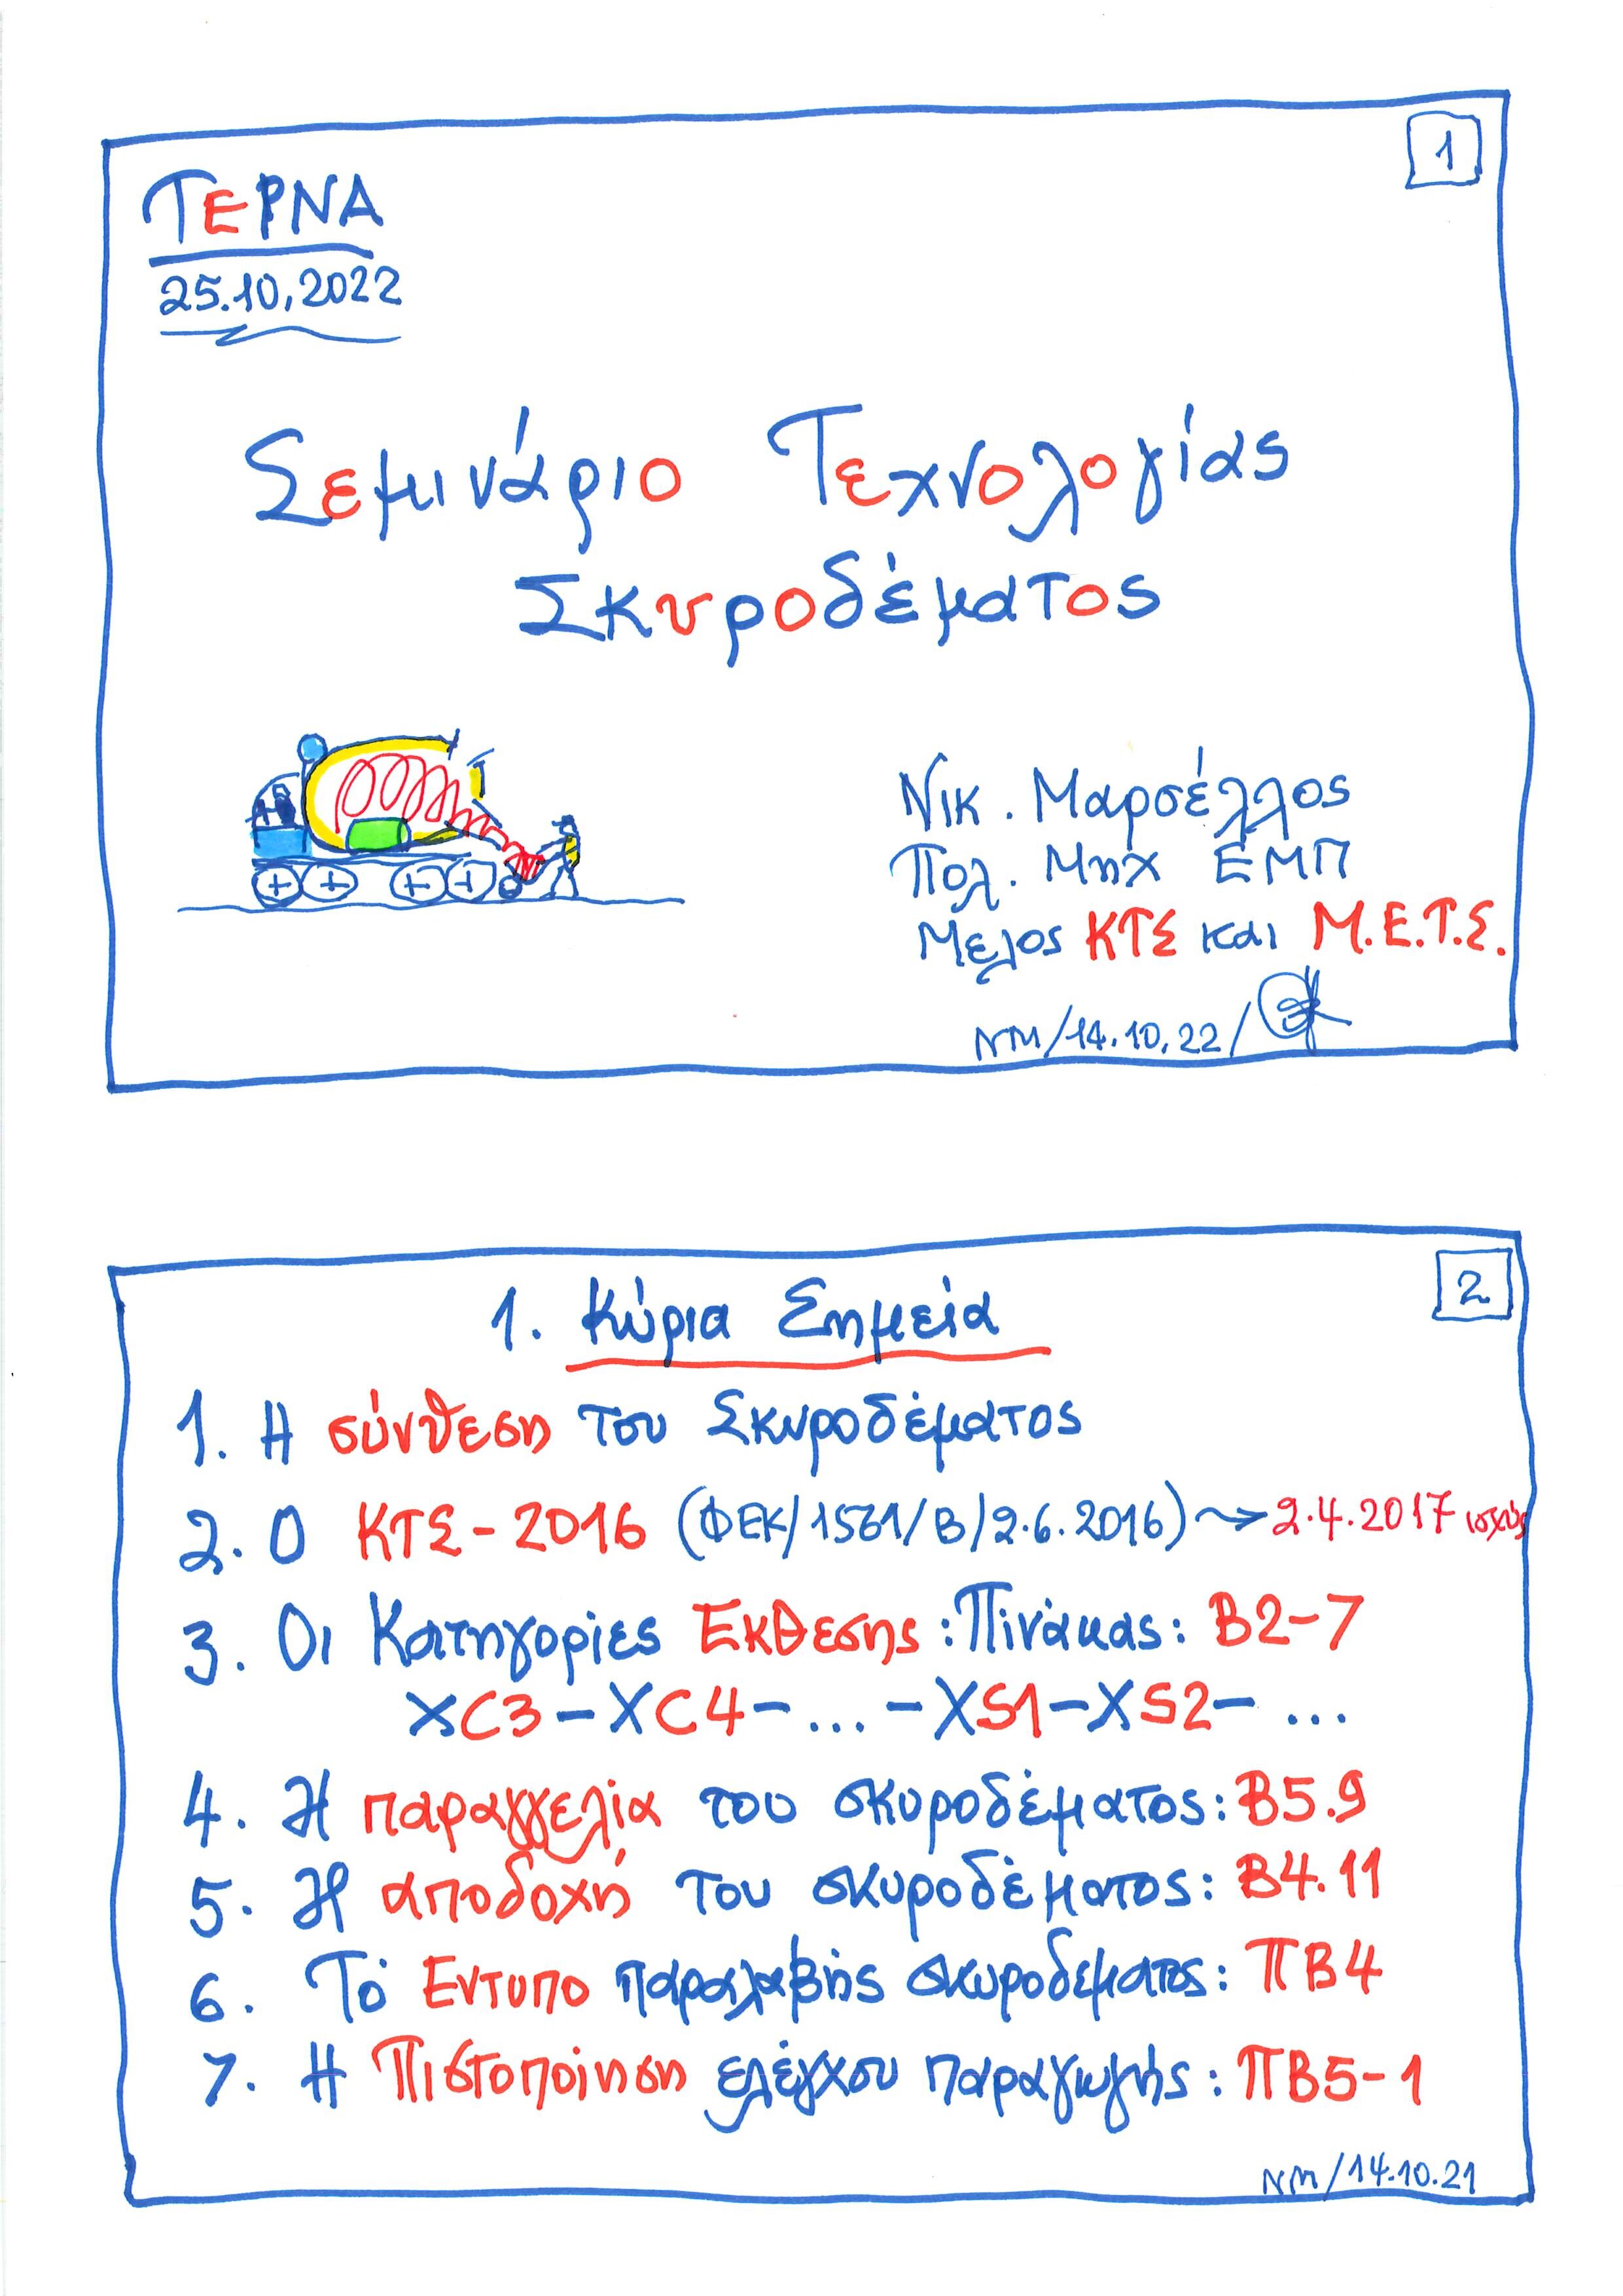 1
ΤΕΡΝΑ
25.10.2022
Σεμινάριο Τεχνολογίας
Σκυροδέματος
Νικ. Μαρσέλλος
Πολ. Μηχ ΕΜΠ
Μελος ΚΤΣ και Μ.Ε.Τ.Σ.
ΝΜ/14.10.22/
2
1. Κύρια Σημεία
1. Η σύνθεση του Σκυροδέματος
2. Ο ΚΤΣ-2016 (ΦΕΚ/1561/Β/2.6.2016) → 2.4.2017 ισχύς
3. Οι Κατηγορίες Εκθεσης: Πινάκας: Β2-7
XC3-XC4-...-XS1-XS2-...
4. Η παραγγελία του σκυροδέματος: Β5.9
5. Η αποδοχή του σκυροδέματος: Β4.11
6. Τό Εντυπο παραλαβής σκυροδεματος: ΠΒ4
7. Η Πιστοποίηση ελέγχου παραγωγής: ΠΒ5-1
ΝΜ/14.10.21